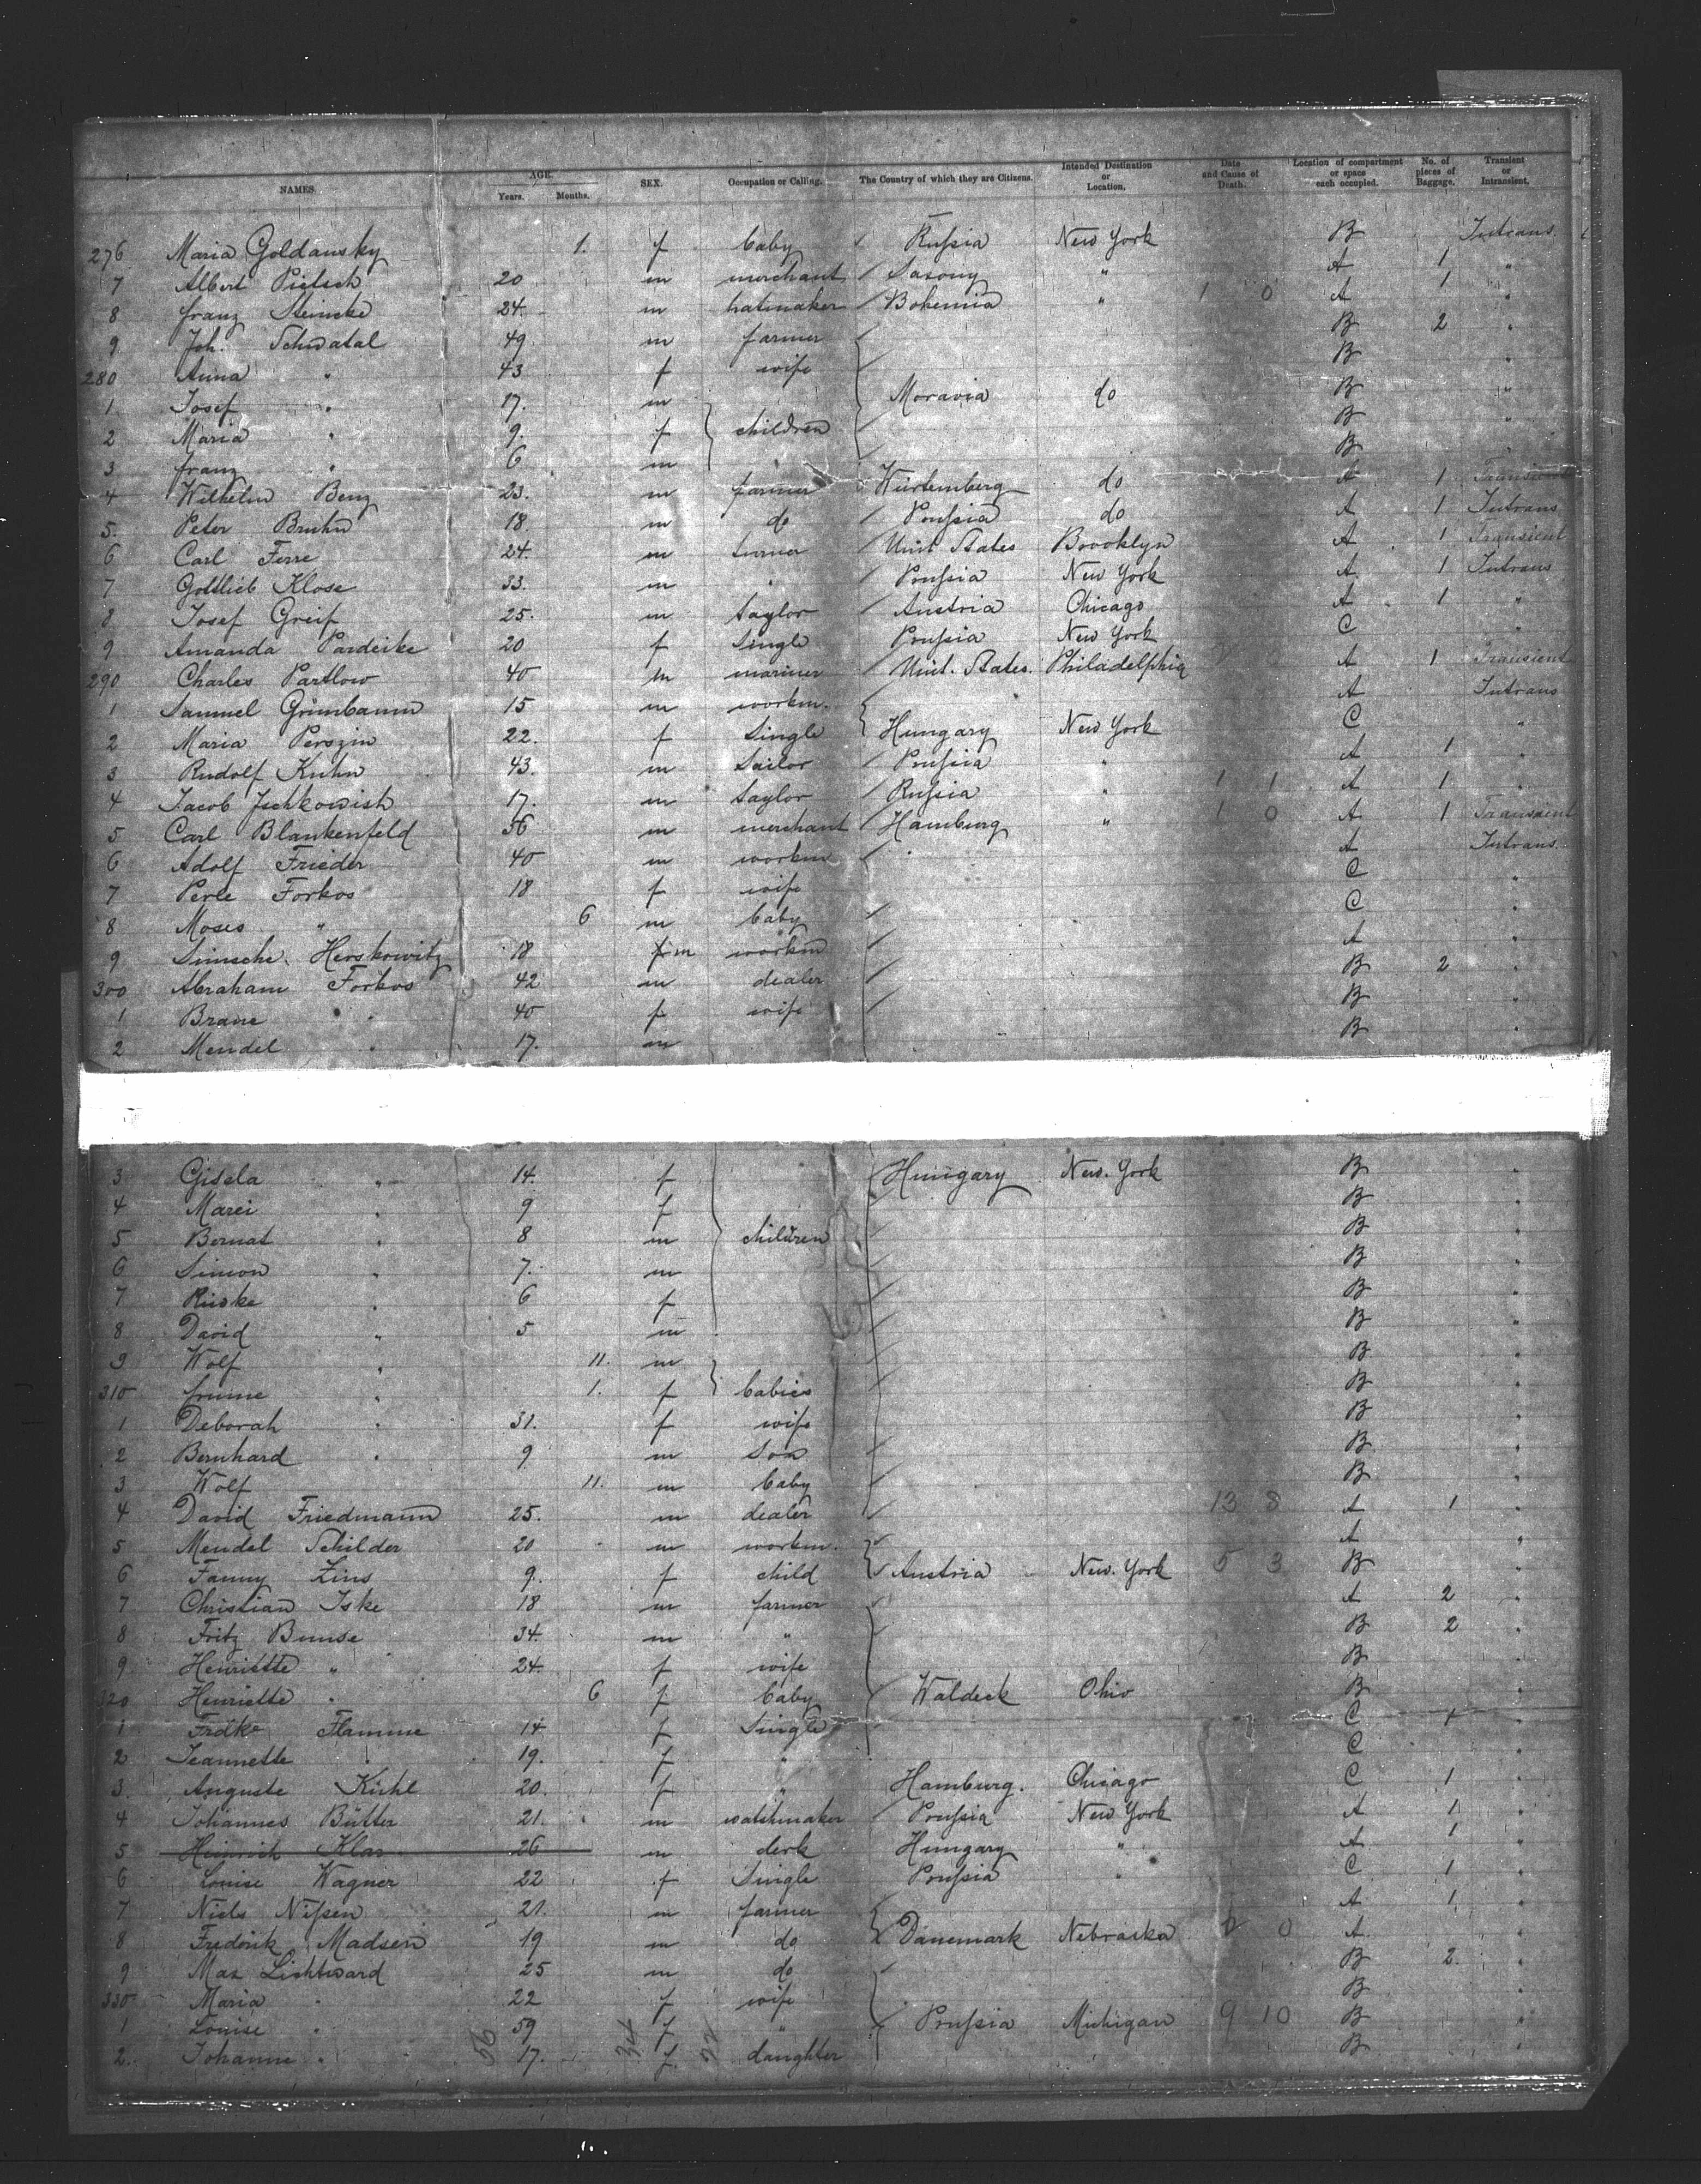 NAMES. AGE. Years. Months. SEX. Occupation or Calling. The Country of which they are Citizens. Intended Destination or Location. Date and Cause of Death. Location of compartment or space each occupied. No. of pieces of Baggage. Transient or Intransient.
276 Maria Goldansky 1. f baby Rußia New York B Intrans.
7 Albert Pietsch 20 m merchant Saxony " A 1 "
8 franz Steincke 24 m hatmaker Bohemia " 1 0 A 1 "
9 Joh. Schwatal 49 m farmer B 2 "
280 Anna " 43 f wife B "
1 Josef " 17. m Moravia do B "
2 Maria " 9. f children B
3 franz " 6 m B
4 Wilhelm Benz 23. m farmer Würtemberg do A 1 Transient
5. Peter Bruhn 18. m do Preußia do A 1 Intrans
6 Carl Ferre 24. m turner Unit States Brooklyn A 1 Transient
7 Gottlieb Klose 33. m " Preußia New York A 1 Intrans
8 Josef Greif 25. m taylor Austria Chicago A 1 "
9 Amanda Pardeike 20 f Single Preußia New York C "
290 Charles Partlow 40 m mariner Unit. States. Philadelphia A 1 Transient
1 Samuel Grünbaum 15 m workm. A Intrans
2 Maria Perszin 22. f Single Hungary New York C "
3 Rudolf Kuhn 43. m Sailor Preußia " A 1 "
4 Jacob 17. m taylor Rußia " 1 1 A 1 "
5 Carl Blankenfeld 36 m merchant Hamburg " 1 0 A 1 Transient
6 Adolf Frieder 40 m workm A Intrans.
7 Perle Forkos 18 f wife C "
8 Moses " 6 m baby C "
9 Simsche Herskowitz 18 m workm A "
300 Abraham Forkos 42 m dealer B 2 "
1 Brane " 40 f wife B "
2 Mendel " 17. m B "
3 Gisela " 14. f Hungary New. York B "
4 Marei " 9 f B "
5 Bernat " 8 m children B "
6 Simon " 7. m B "
7 Riwke " 6 f B "
8 David " 5 m B "
9 Wolf " 11. m B "
310 frume " 1. f babies B "
1 Deborah " 31. f wife B "
2 Bernhard " 9 m Son B "
3 Wolf 11. m baby B "
4 David Friedmann 25. m dealer 13 8 A 1 "
5 Mendel Schilder 20 m workm. A "
6 Fanny Zins 9. f child Austria New. York 5 3 B "
7 Christian Iske 18 m farmer A 2 "
8 Fritz Bunse 34. m " B 2 "
9 Henriette " 24. f wife B "
320 Henriette " 6 f baby Waldeck Ohio B "
1 Flamme 14 f Single C 1 "
2 Jeannette " 19. f " C "
3. Auguste Kühl 20. f " Hamburg. Chicago C 1 "
4 Johannes Bütter 21. m watchmaker Preußia New York A 1 "
5 Heinrich Klar 26 m clerk Hungary " A 1 "
6 Louise Wagner 22 f Single Preußia " C 1 "
7 Niels Nißen 21. m farmer A 1 "
8 Fredrik Madsen 19 m do Danemark Nebraska 0 0 A "
9 Max Lichtward 25 m do B 2. "
330 Maria " 22 f wife B "
1 Louise " 59 f " Preußia Michigan 9 10 B "
2. Johanne " 17. f. daughter B "
56 34 22